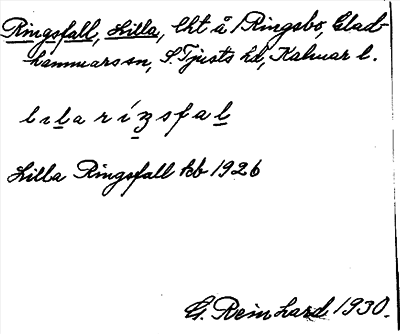 Ringsfall, Lilla, lht å /Ringsbo, Glad-
hammars sn, S. Tjusts hd, Kalmar l.
lılla rízsfal
Lilla Ringsfall kb 1926
G. Reinhard 1930.